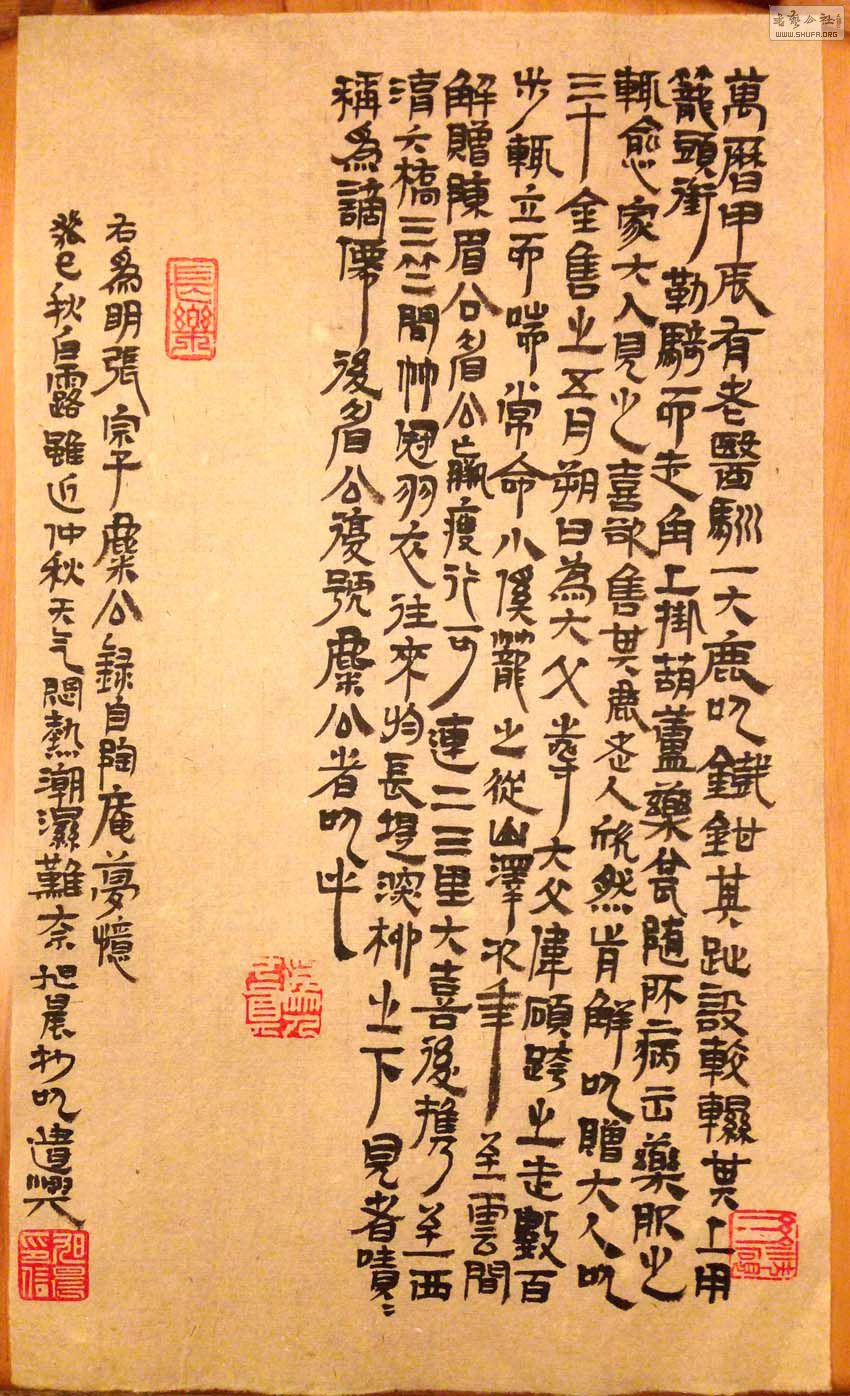 萬曆甲辰有老醫馴一大鹿以鐵鉗其趾設較韅其上用
籠頭銜勒騎而走角上掛葫蘆藥瓮隨所病出藥服之
輒愈家大人見之喜欲售其鹿老人欣然肯解以贈大人以
三十金售之五月朔日為大父壽大父偉碩跨之走數百
步輒立而喘常命小傒籠之從山澤次年至雲間
解贈陳眉公眉公羸瘦行可連二三里大喜後攜至西
湖六橋三竺間竹冠羽衣往來於長堤深柳之下見者嘖〻
稱為謫僊後眉公復號麋公者以此
長樂
右為明張宗子麋公錄自陶庵夢憶
癸巳秋白露雖近仲秋天气悶熱潮濕難奈旭晨抄以遣興
旭晨印信
WWW.SHUFA.ORG